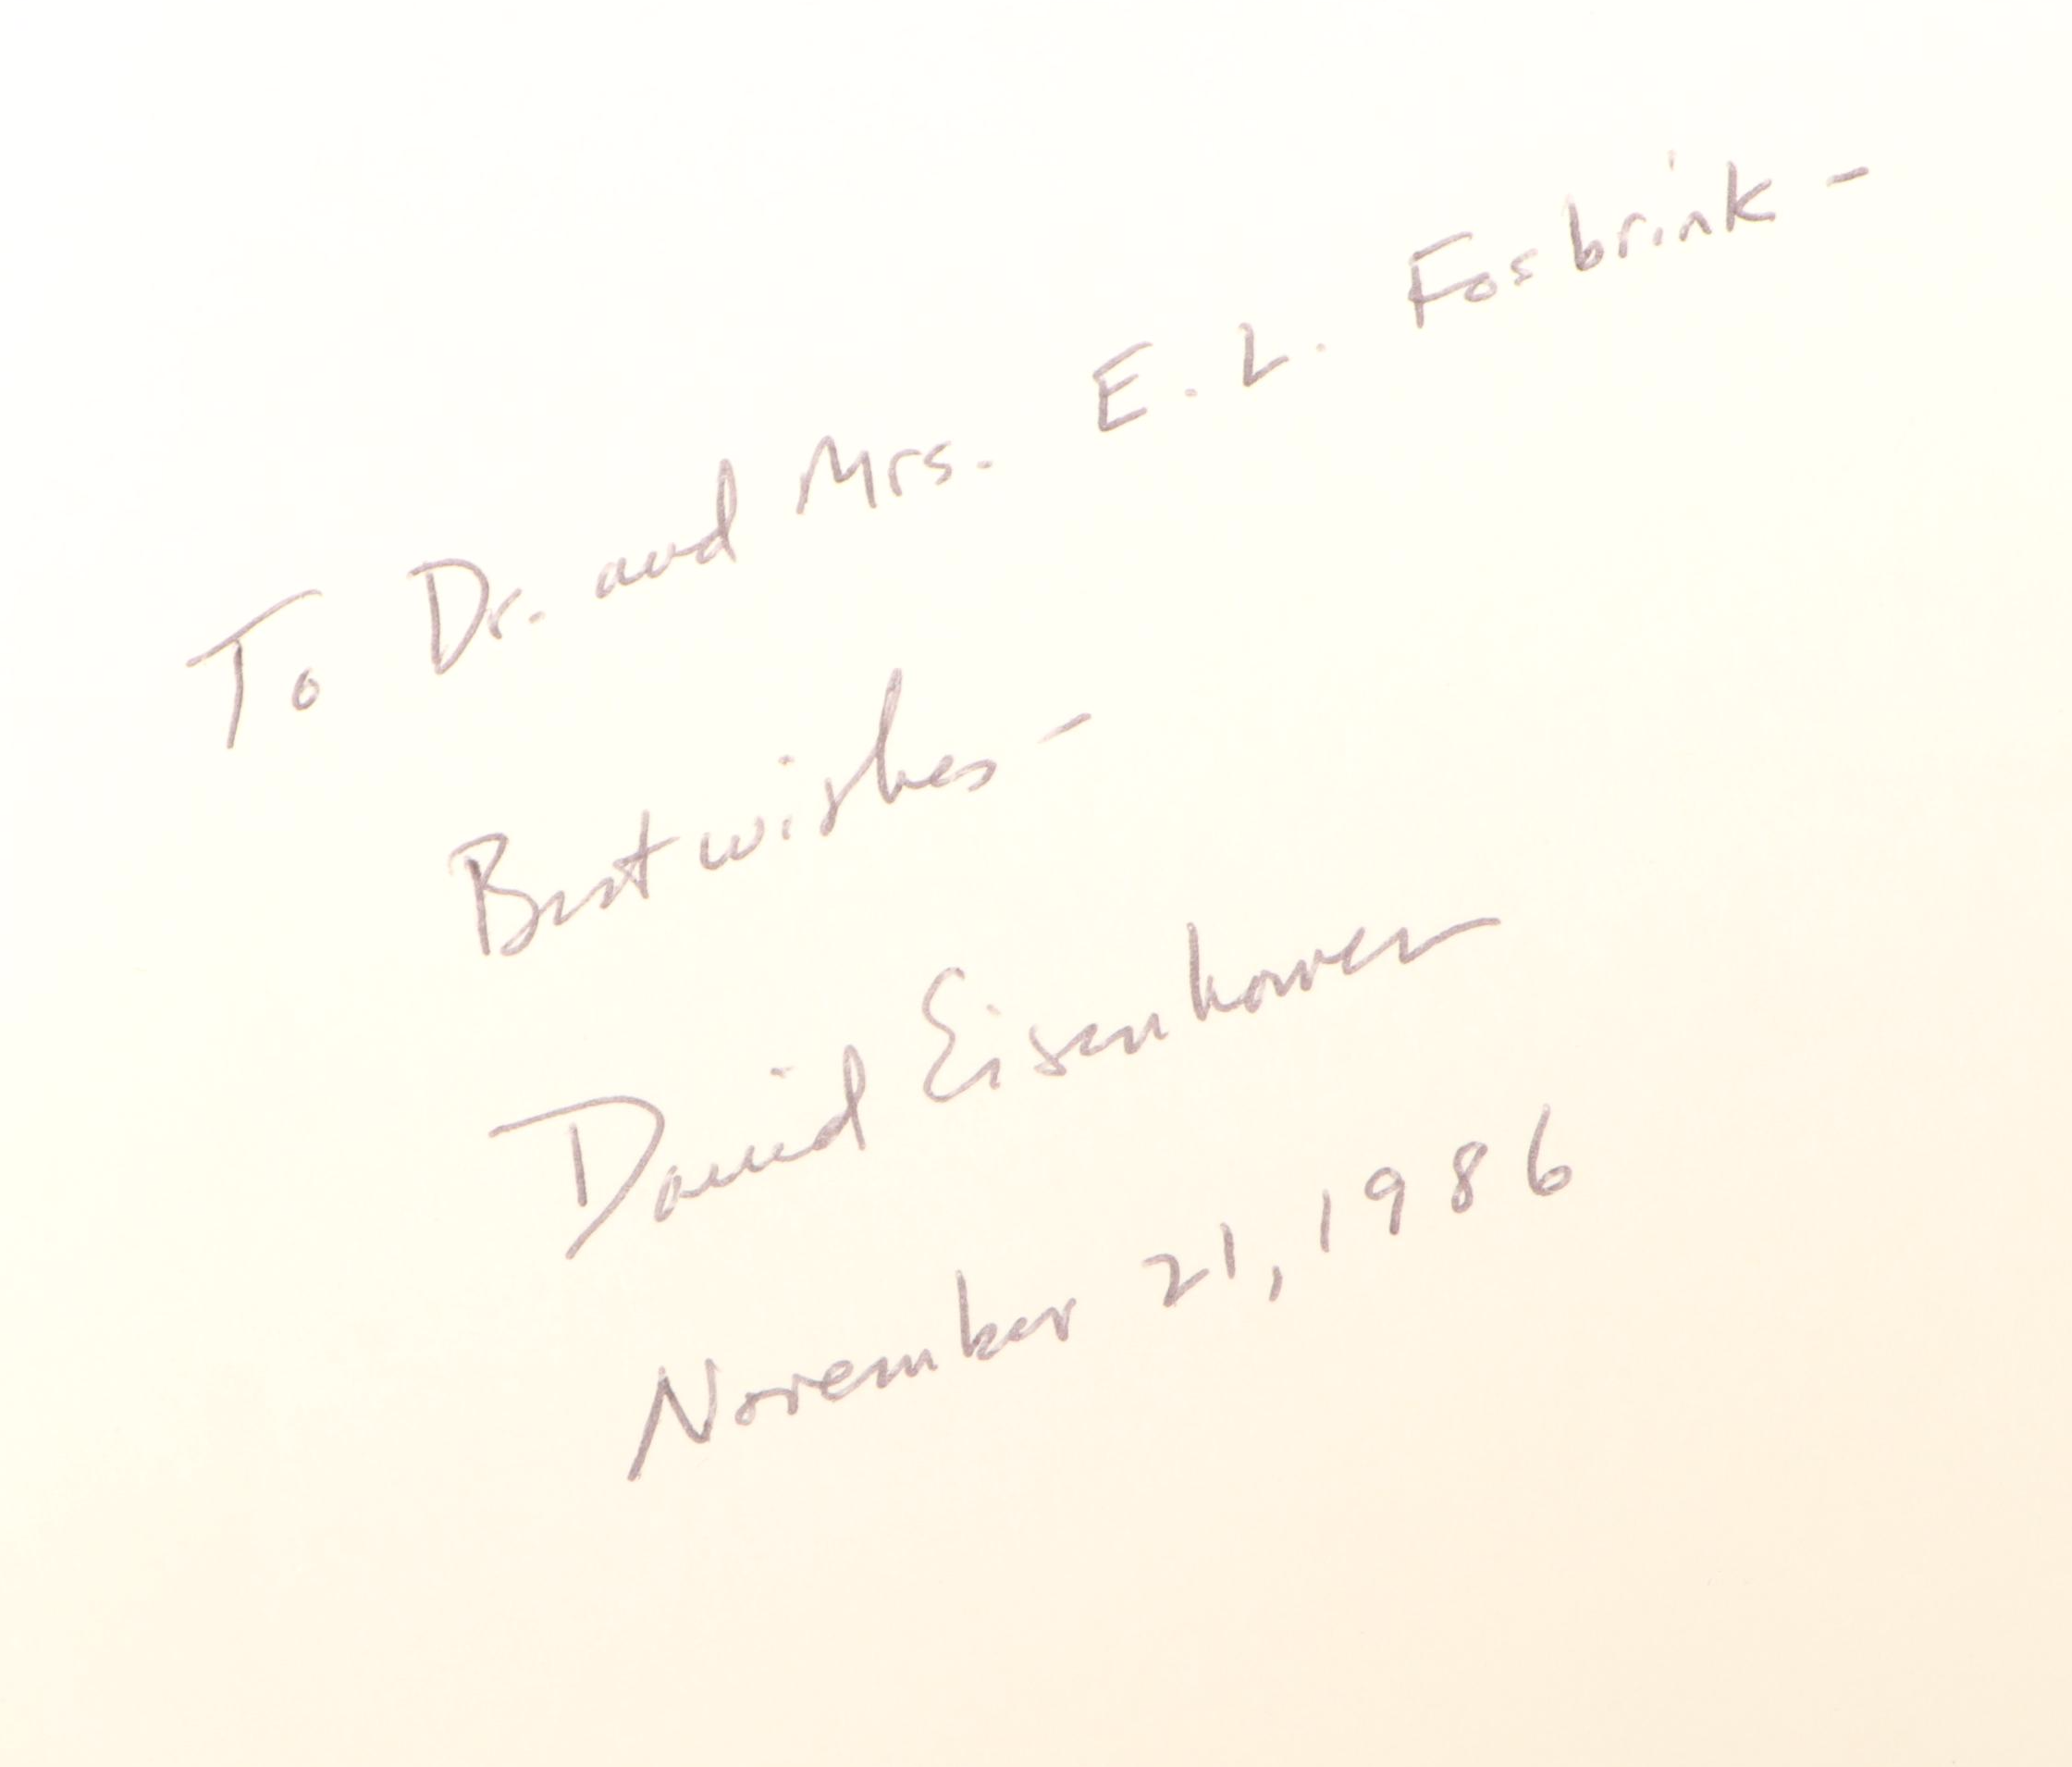 To Dr. and Mrs. E. L. Fosbrink -
Best wishes -
David Eisenhower
November 21, 1986